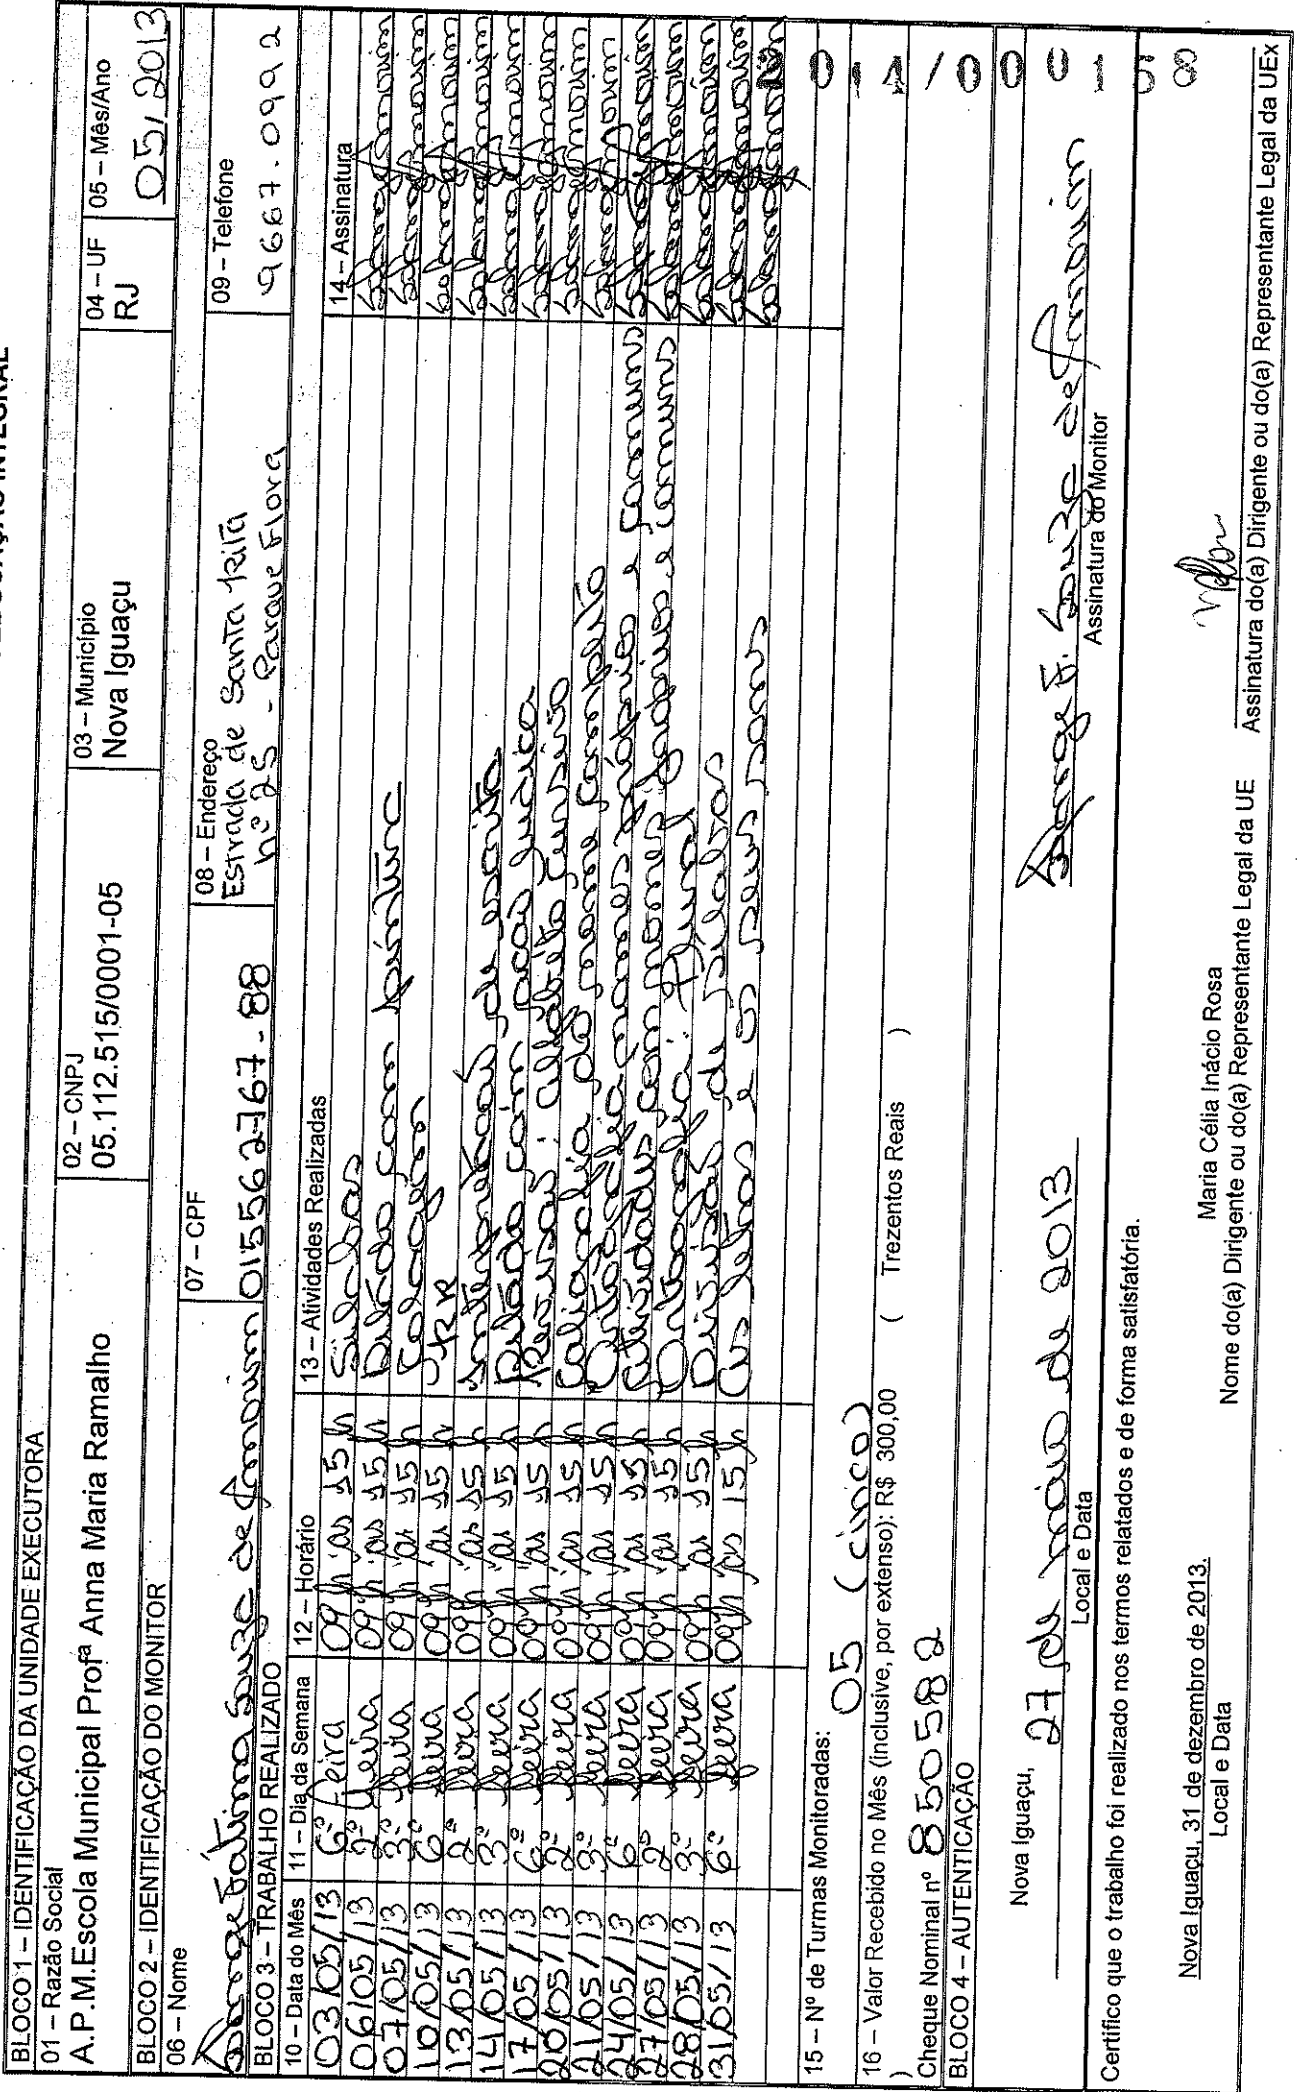 BLOCO 1 – IDENTIFICAÇÃO DA UNIDADE EXECUTORA
01 – Razão Social
A.P.M.Escola Municipal Profª Anna Maria Ramalho
02 – CNPJ
05.112.515/0001-05
03 – Município
Nova Iguaçu
04 – UF
RJ
05 – Mês/Ano
05/2013
BLOCO 2 – IDENTIFICAÇÃO DO MONITOR
06 – Nome
Fátima Souza de Amorim
07 – CPF
015562767-88
08 – Endereço
Estrada de Santa Rita
nº 25 - Parque Flora
09 – Telefone
9667.0992
BLOCO 3 – TRABALHO REALIZADO
10 – Data do Mês 11 – Dia da Semana 12 – Horário 13 – Atividades Realizadas 14 – Assinatura
03/05/13 6ª feira 09h às 15h Sílabas
06/05/13 2ª feira 09h às 15h Ditado com pintura
07/05/13 3ª feira 09h às 15h Colagem
10/05/13 6ª feira 09h às 15h
13/05/13 2ª feira 09h às 15h Interpretação de escrita
14/05/13 3ª feira 09h às 15h Ditado com jogo lúdico
17/05/13 6ª feira 09h às 15h Revisão: alfabeto cursivo
20/05/13 2ª feira 09h às 15h Caligrafia do nome completo
21/05/13 3ª feira 09h às 15h Ortografia nomes próprios e comuns
24/05/13 6ª feira 09h às 15h Atividades com nomes próprios e comuns
27/05/13 2ª feira 09h às 15h Ortografia: Plural
28/05/13 3ª feira 09h às 15h Divisão de sílabas
31/05/13 6ª feira 09h às 15h As letras e os seus sons
15 – Nº de Turmas Monitoradas: 05 (cinco)
16 – Valor Recebido no Mês (inclusive, por extenso): R$ 300,00 ( Trezentos Reais )
)
Cheque Nominal nº 850582
BLOCO 4 – AUTENTICAÇÃO
Nova Iguaçu, 27 de maio de 2013
Local e Data
F. Souza de Amorim
Assinatura do Monitor
Certifico que o trabalho foi realizado nos termos relatados e de forma satisfatória.
Nova Iguaçu, 31 de dezembro de 2013.
Local e Data
Maria Célia Inácio Rosa
Nome do(a) Dirigente ou do(a) Representante Legal da UE
Assinatura do(a) Dirigente ou do(a) Representante Legal da UEx